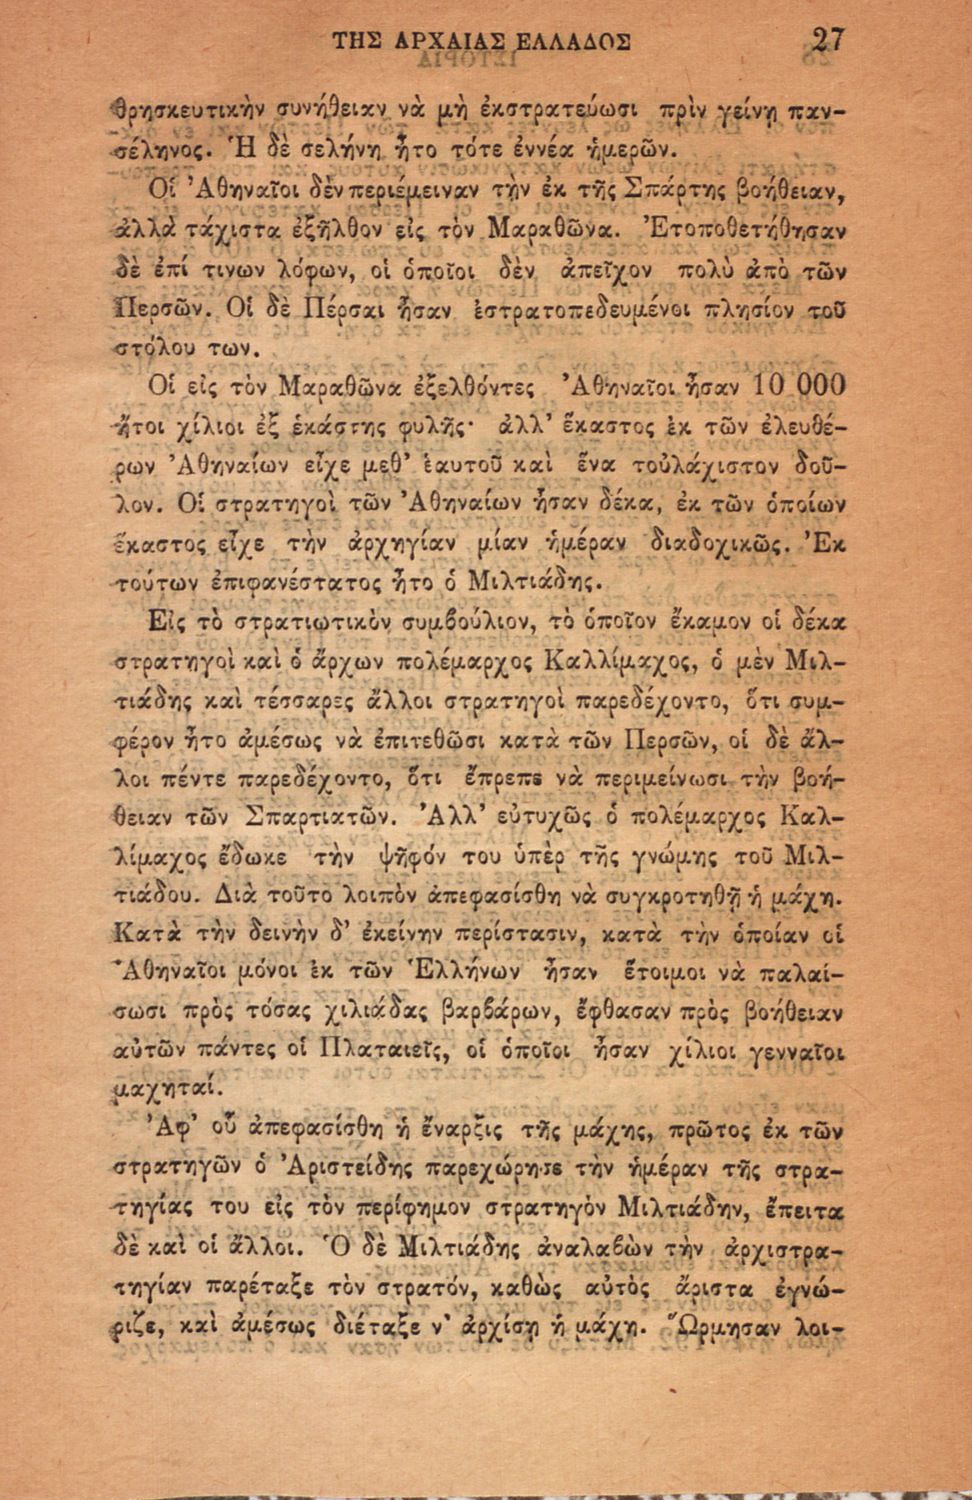 ΤΗΣ ΑΡΧΑΙΑΣ ΕΛΛΑΔΟΣ 27
θρησκευτικὴν συνήθειαν νὰ μὴ ἐκστρατεύωσι πρὶν γείνῃ παν-
σέληνος. Ἡ δὲ σελήνη ἦτο τότε ἐννέα ἡμερῶν.
Οἱ Ἀθηναῖοι δὲν περιέμειναν τὴν ἐκ τῆς Σπάρτης βοήθειαν,
ἀλλὰ τάχιστα ἐξῆλθον εἰς τὸν Μαραθῶνα. Ἐτοποθετήθησαν
δὲ ἐπί τινων λόφων, οἱ ὁποῖοι δὲν ἀπεῖχον πολὺ ἀπὸ τῶν
Περσῶν. Οἱ δὲ Πέρσαι ἦσαν ἐστρατοπεδευμένοι πλησίον τοῦ
στόλου των.
Οἱ εἰς τὸν Μαραθῶνα ἐξελθόντες Ἀθηναῖοι ἦσαν 10 000
ἤτοι χίλιοι ἐξ ἑκάστης φυλῆς· ἀλλ' ἕκαστος ἐκ τῶν ἐλευθέ-
ρων Ἀθηναίων εἶχε μεθ' ἑαυτοῦ καὶ ἕνα τοὐλάχιστον δοῦ-
λον. Οἱ στρατηγοὶ τῶν Ἀθηναίων ἦσαν δέκα, ἐκ τῶν ὁποίων
ἕκαστος εἶχε τὴν ἀρχηγίαν μίαν ἡμέραν διαδοχικῶς. Ἐκ
τούτων ἐπιφανέστατος ἦτο ὁ Μιλτιάδης.
Εἰς τὸ στρατιωτικὸν συμβούλιον, τὸ ὁποῖον ἔκαμον οἱ δέκα
στρατηγοὶ καὶ ὁ ἄρχων πολέμαρχος Καλλίμαχος, ὁ μὲν Μιλ-
τιάδης καὶ τέσσαρες ἄλλοι στρατηγοὶ παρεδέχοντο, ὅτι συμ-
φέρον ἦτο ἀμέσως νὰ ἐπιτεθῶσι κατὰ τῶν Περσῶν, οἱ δὲ ἄλ-
λοι πέντε παρεδέχοντο, ὅτι ἔπρεπε νὰ περιμείνωσι τὴν βοή-
θειαν τῶν Σπαρτιατῶν. Ἀλλ' εὐτυχῶς ὁ πολέμαρχος Καλ-
λίμαχος ἔδωκε τὴν ψῆφόν του ὑπὲρ τῆς γνώμης τοῦ Μιλ-
τιάδου. Διὰ τοῦτο λοιπὸν ἀπεφασίσθη νὰ συγκροτηθῇ ἡ μάχη.
Κατὰ τὴν δεινὴν δ' ἐκείνην περίστασιν, κατὰ τὴν ὁποίαν οἱ
Ἀθηναῖοι μόνοι ἐκ τῶν Ἑλλήνων ἦσαν ἕτοιμοι νὰ παλαί-
σωσι πρὸς τόσας χιλιάδας βαρβάρων, ἔφθασαν πρὸς βοήθειαν
αὐτῶν πάντες οἱ Πλαταιεῖς, οἱ ὁποῖοι ἦσαν χίλιοι γενναῖοι
μαχηταί.
Ἀφ' οὗ ἀπεφασίσθη ἡ ἔναρξις τῆς μάχης, πρῶτος ἐκ τῶν
στρατηγῶν ὁ Ἀριστείδης παρεχώρησε τὴν ἡμέραν τῆς στρα-
τηγίας του εἰς τὸν περίφημον στρατηγὸν Μιλτιάδην, ἔπειτα
δὲ καὶ οἱ ἄλλοι. Ὁ δὲ Μιλτιάδης ἀναλαβὼν τὴν ἀρχιστρα-
τηγίαν παρέταξε τὸν στρατόν, καθὼς αὐτὸς ἄριστα ἐγνώ-
ριζε, καὶ ἀμέσως διέταξε ν' ἀρχίσῃ ἡ μάχη. Ὥρμησαν λοι-